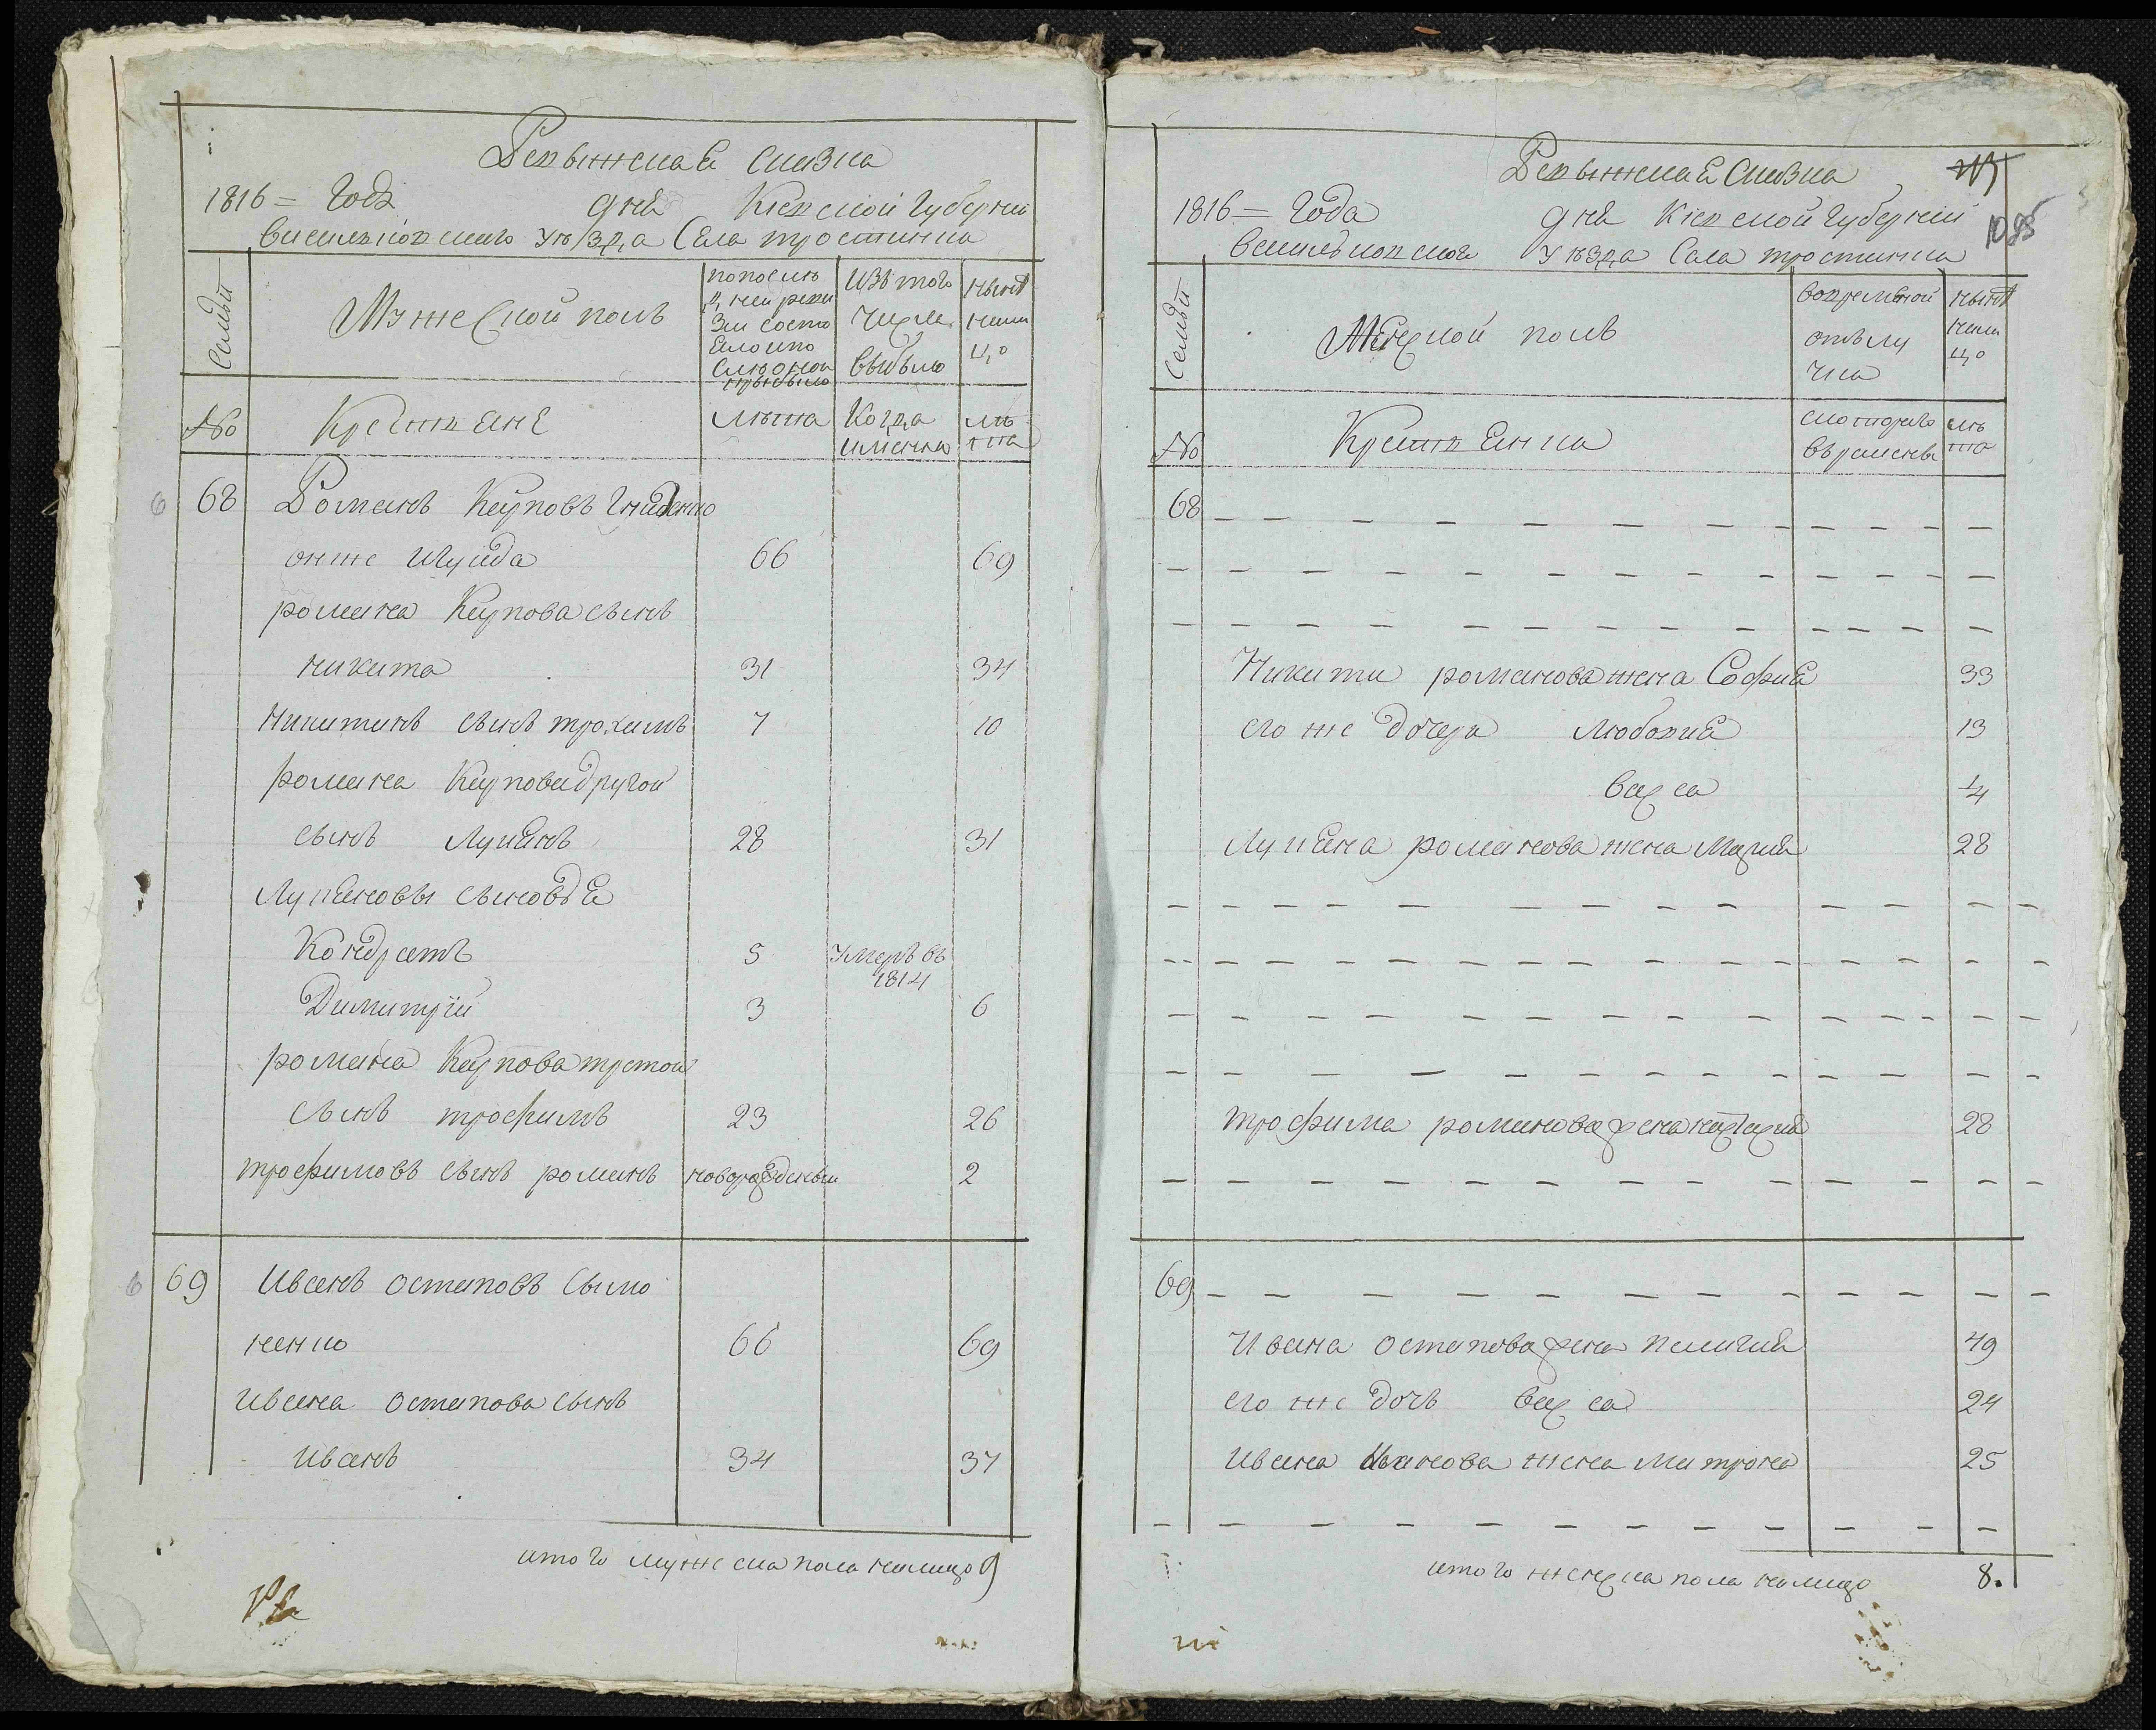 Ревижская сказка
1816 = года дня Киевской Губернии
Васильковского уѣзда Села тростинка
семьи
Мужеской полъ
по послѣ
д ней реви
зии состо
яло и по
слѣ оной
прибыло
изъ того
числа
выбыло
нынѣ
нали
цо
No
Крестяне
лѣта
Когда
именно
лѣ
та
68 Романъ Карповъ
онже Шуйда 66 69
романа Карпова сынъ
никита 31 34
Никитинъ сынъ трохимъ 7 10
романа Карпова другой
сынъ Лукянъ 28 31
Лукяновы сыновья
Кондратъ 5 Умеръ въ
1814
Димитрій 3 6
романа Карпова третой
сынъ трофимъ 23 26
трофимовъ сынъ романъ новорожденый 2
69 Иванъ остаповъ Сымо
ненко 66 69
ивана остапова сынъ
иванъ 34 37
итого мужеска пола налицо 9
Ревижская Сказка
1095
1816 = Года дня Киевской Губерніи
Василковског Уѣзда Села тростинка
семьи
Женской полъ
во времѣной
отлу
чка
нынѣ
нали
цо
No
Крестянка
с которого
времены
лѣ
та
68
Никити романова жена София 33
его же дочери Любовия 13
васса 4
Лукяна романова жена Мария 28
трофима романова жена 28
69
Ивана остапова жена пелагия 49
его же дочь васса 24
ивана Иванова жена матрона 25
итого женска пола налицо 8.